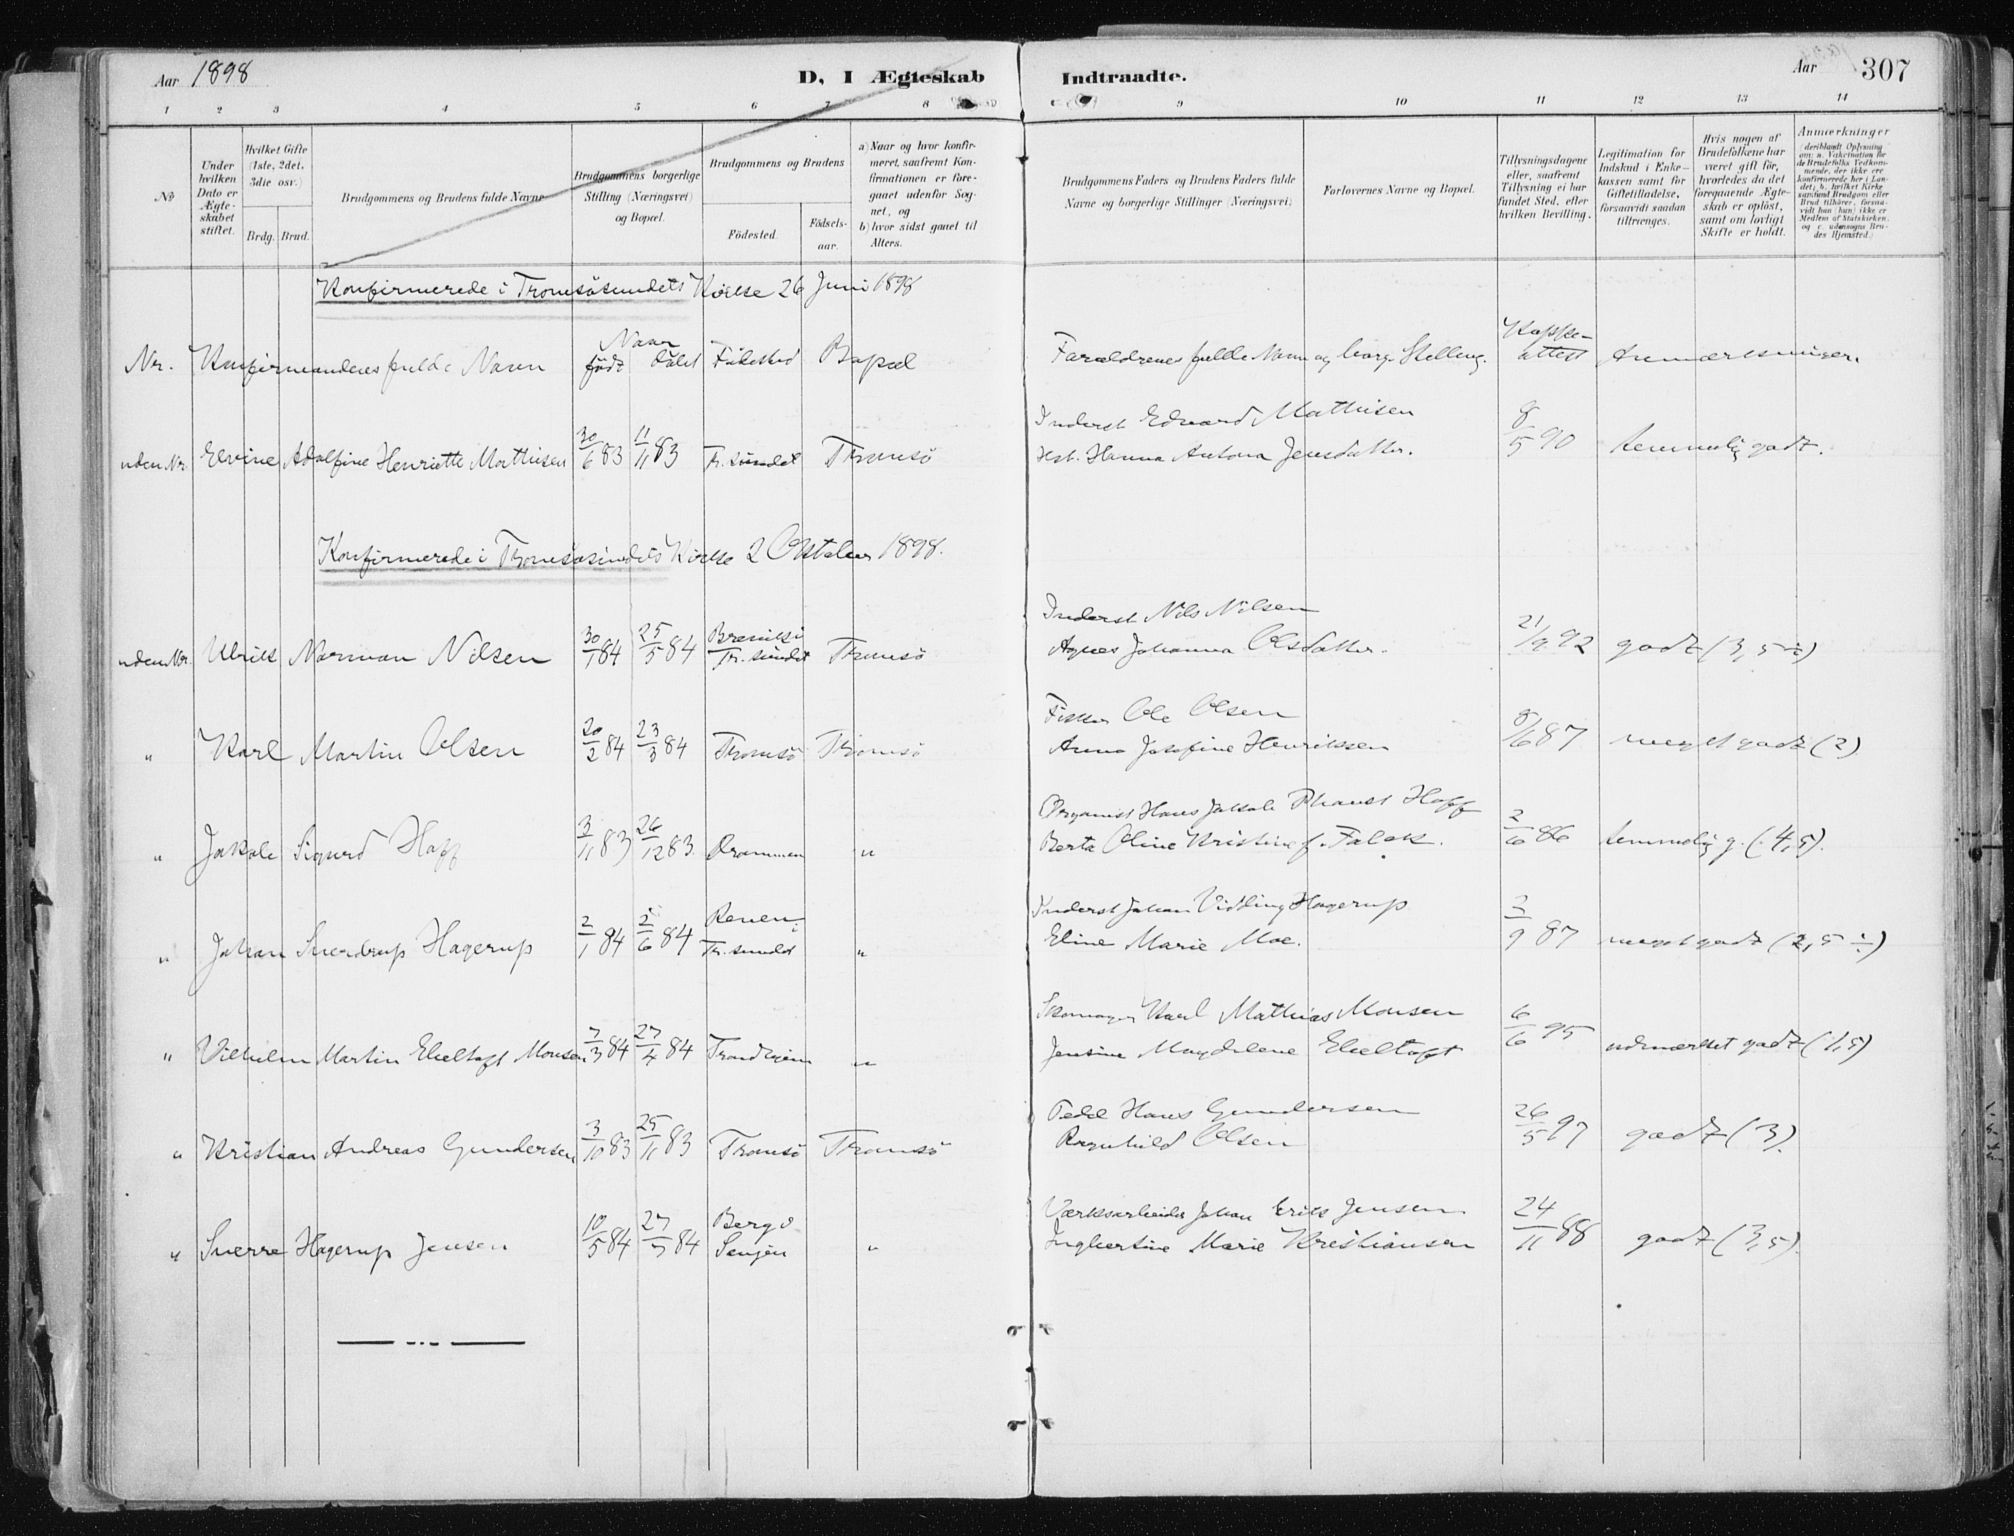 Aar 1898
D, I Ægteskab Indtraadte.
Aar 307
1 2 3 4 5 6 7 8 9 10 11 12 13 14
No
Under hvilken Dato er Ægteskabet stiftet.
Hvilket Gifte (1ste, 2det, 3die osv.)
Brdg. Brud.
Brudgommens og Brudens fulde Navne
Brudgommens borgerlige Stilling (Næringsvei) og Bopæl.
Brudgommens og Brudens
Födested.
Födselsaar.
a) Naar og hvor konfirmeret, saafremt Konfirmationen er foregaaet udenfor Sognet, og
b) hvor sidst gaaet til Alters.
Brudgommens Faders og Brudens Faders fulde Navne og borgerlige Stillinger (Næringsvei)
Forlovernes Navne og Bopæl.
Tillysningsdagene eller, saafremt Tillysning ei har fundet Sted, efter hvilken Bevilling.
Legitimation for Indskud i Enkekassen samt for Giftetilladelse, forsaavidt saadan tiltrænges.
Hvis nogen af Brudefolkene har været gift för, hvorledes da det foregaaende Ægteskab er oplöst, samt om lovligt Skifte er holdt.
Anmærkninger
(deriblandt Oplysning om: a. Vakcination for de Brudefolks Vedkommende, der ikke ere konfirmerede her i Landet; b. hvilket Kirkesamfund Brudgom eller Brud tilhører, forsaavidt han (hun) ikke er Medlem af Statskirken, og c. udensogns Brudes Hjemsted.)
Konfirmerede i Tromsøsundets Kirke 26 Juni 1898
Nr. Konfirmandenes fulde Navn Naar født døbt Fødested Bopæl Forældrenes fulde Navn og borg. Stilling. Koppeattest Anmærkninger.
uden Nr. Elvine Adolfine Henriette Mathisen 30/6 83 11/11 83 Tr.sundet Tromsø Inderst Edvard Mathisen 8/5 90 temmelig godt.
Hst. Hanna Antona Jensdatter.
Konfirmerede i Tromsøsundets Kirke 2 Oktober 1898.
uden Nr. Ulrik Norman Nilsen 30/1 84 25/5 84 Tr.sundet Tromsø Inderst Nils Nilsen 21/9 92 godt (3,5 ÷)
Agnes Johanna Olsdatter.
" Karl Martin Olsen 20/2 84 23/3 84 Tromsø Tromsø Fisker Ole Olsen 8/6 87 meget godt (2)
Anna Josefine Henrikssen
" Jakob Sigurd Hoff 3/11 83 26/12 83 Drammen " Organist Hans Jakob Hoff 2/6 86 temmelig g. (4,5).
Berta Oline Kristine f. Falck.
" Johan Sverdrup Hagerup 2/1 84 2/6 84 Renen Tr.sundet " Inderst Johan Vidding Hagerup 3/9 87 meget godt (2,5 ÷)
Eline Marie Moe.
" Vilhelm Martin Ebeltoft Monsen 7/3 84 27/4 84 Trondhjem " Skomager Karl Mathias Monsen 6/6 95 udmærket godt (1,5)
Jensine Magdalene Ebeltoft
" Kristian Andreas Gundersen 3/10 83 25/11 83 Tromsø Tromsø Pedel Hans Gundersen 26/5 97 godt (3).
Ragnhild Olsen
" Sverre Hagerup Jensen 10/5 84 27/7 84 Berg Senjen " Værksarbeider Johan Erik Jensen 24/11 88 godt (3,5).
Ingbertine Marie Kristiansen